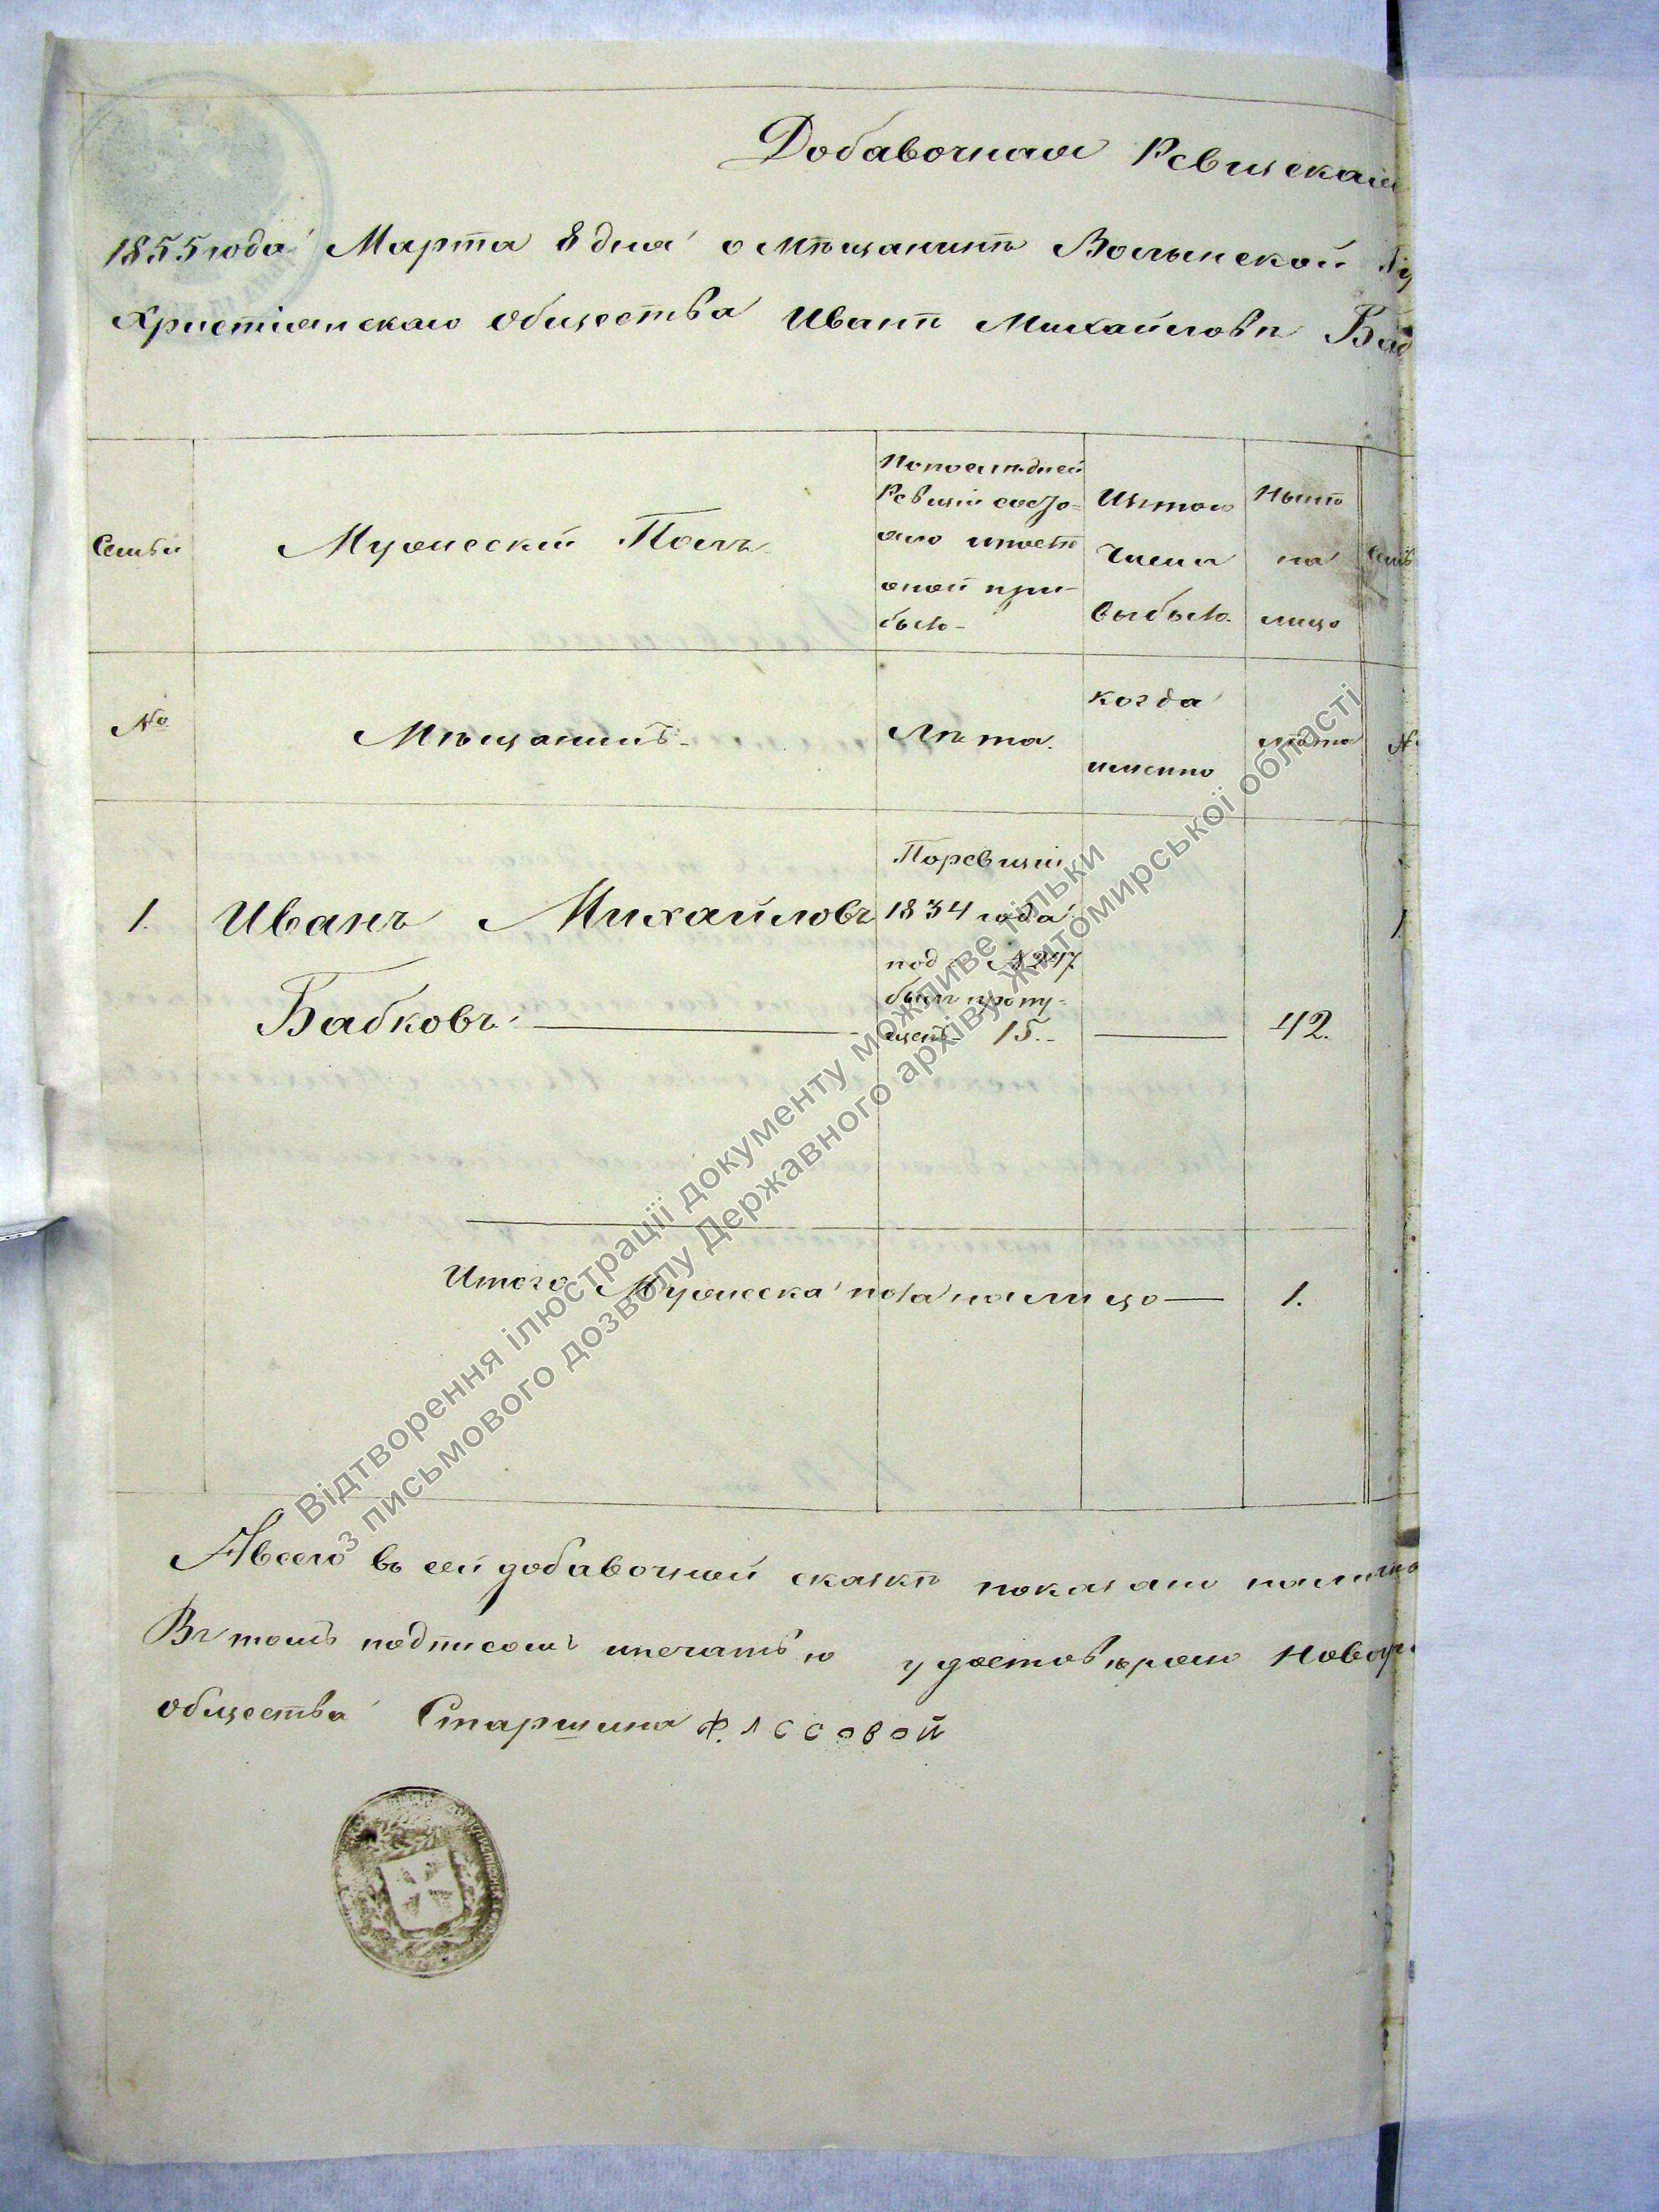 Добавочная Ревизская
1855 года Марта 8 дня о мѣщанинѣ Волынской Гу
Христіанскаго общества Иванѣ Михайловѣ Баб
Семьи
Мужескій Полъ
По последней
Ревизіи состо-
яло и после
оной при-
было
Изъ того
числа
выбыло
Нынѣ
на
лицо
Семь
№
Мѣщанинъ
Лѣта.
когда
именно
лѣта
№
1.
Иванъ Михайловъ
Бабковъ.
По ревизіи
1834 года
под № 297
былъ пропу-
щенъ 15.
42.
1
Итого Мужеска пола на лицо
1.
А всего въ сей добавочной сказкѣ показано на лицо
Въ томъ подписомъ и печатью удостовѣряю Новогр
общества Старшина Ф. Лосовой
Відтворення ілюстрації документу можливе тільки
з письмового дозволу Державного архіву Житомирської області